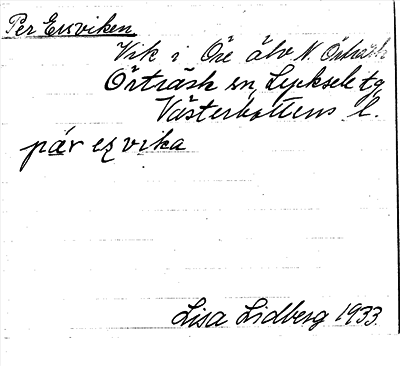 Per Ersviken
Vik i Öre älv N. Örträsk
Örträsk sn, Lycksele tg
Västerbottens l.
pær eʂvika
Lisa Lidberg 1933.